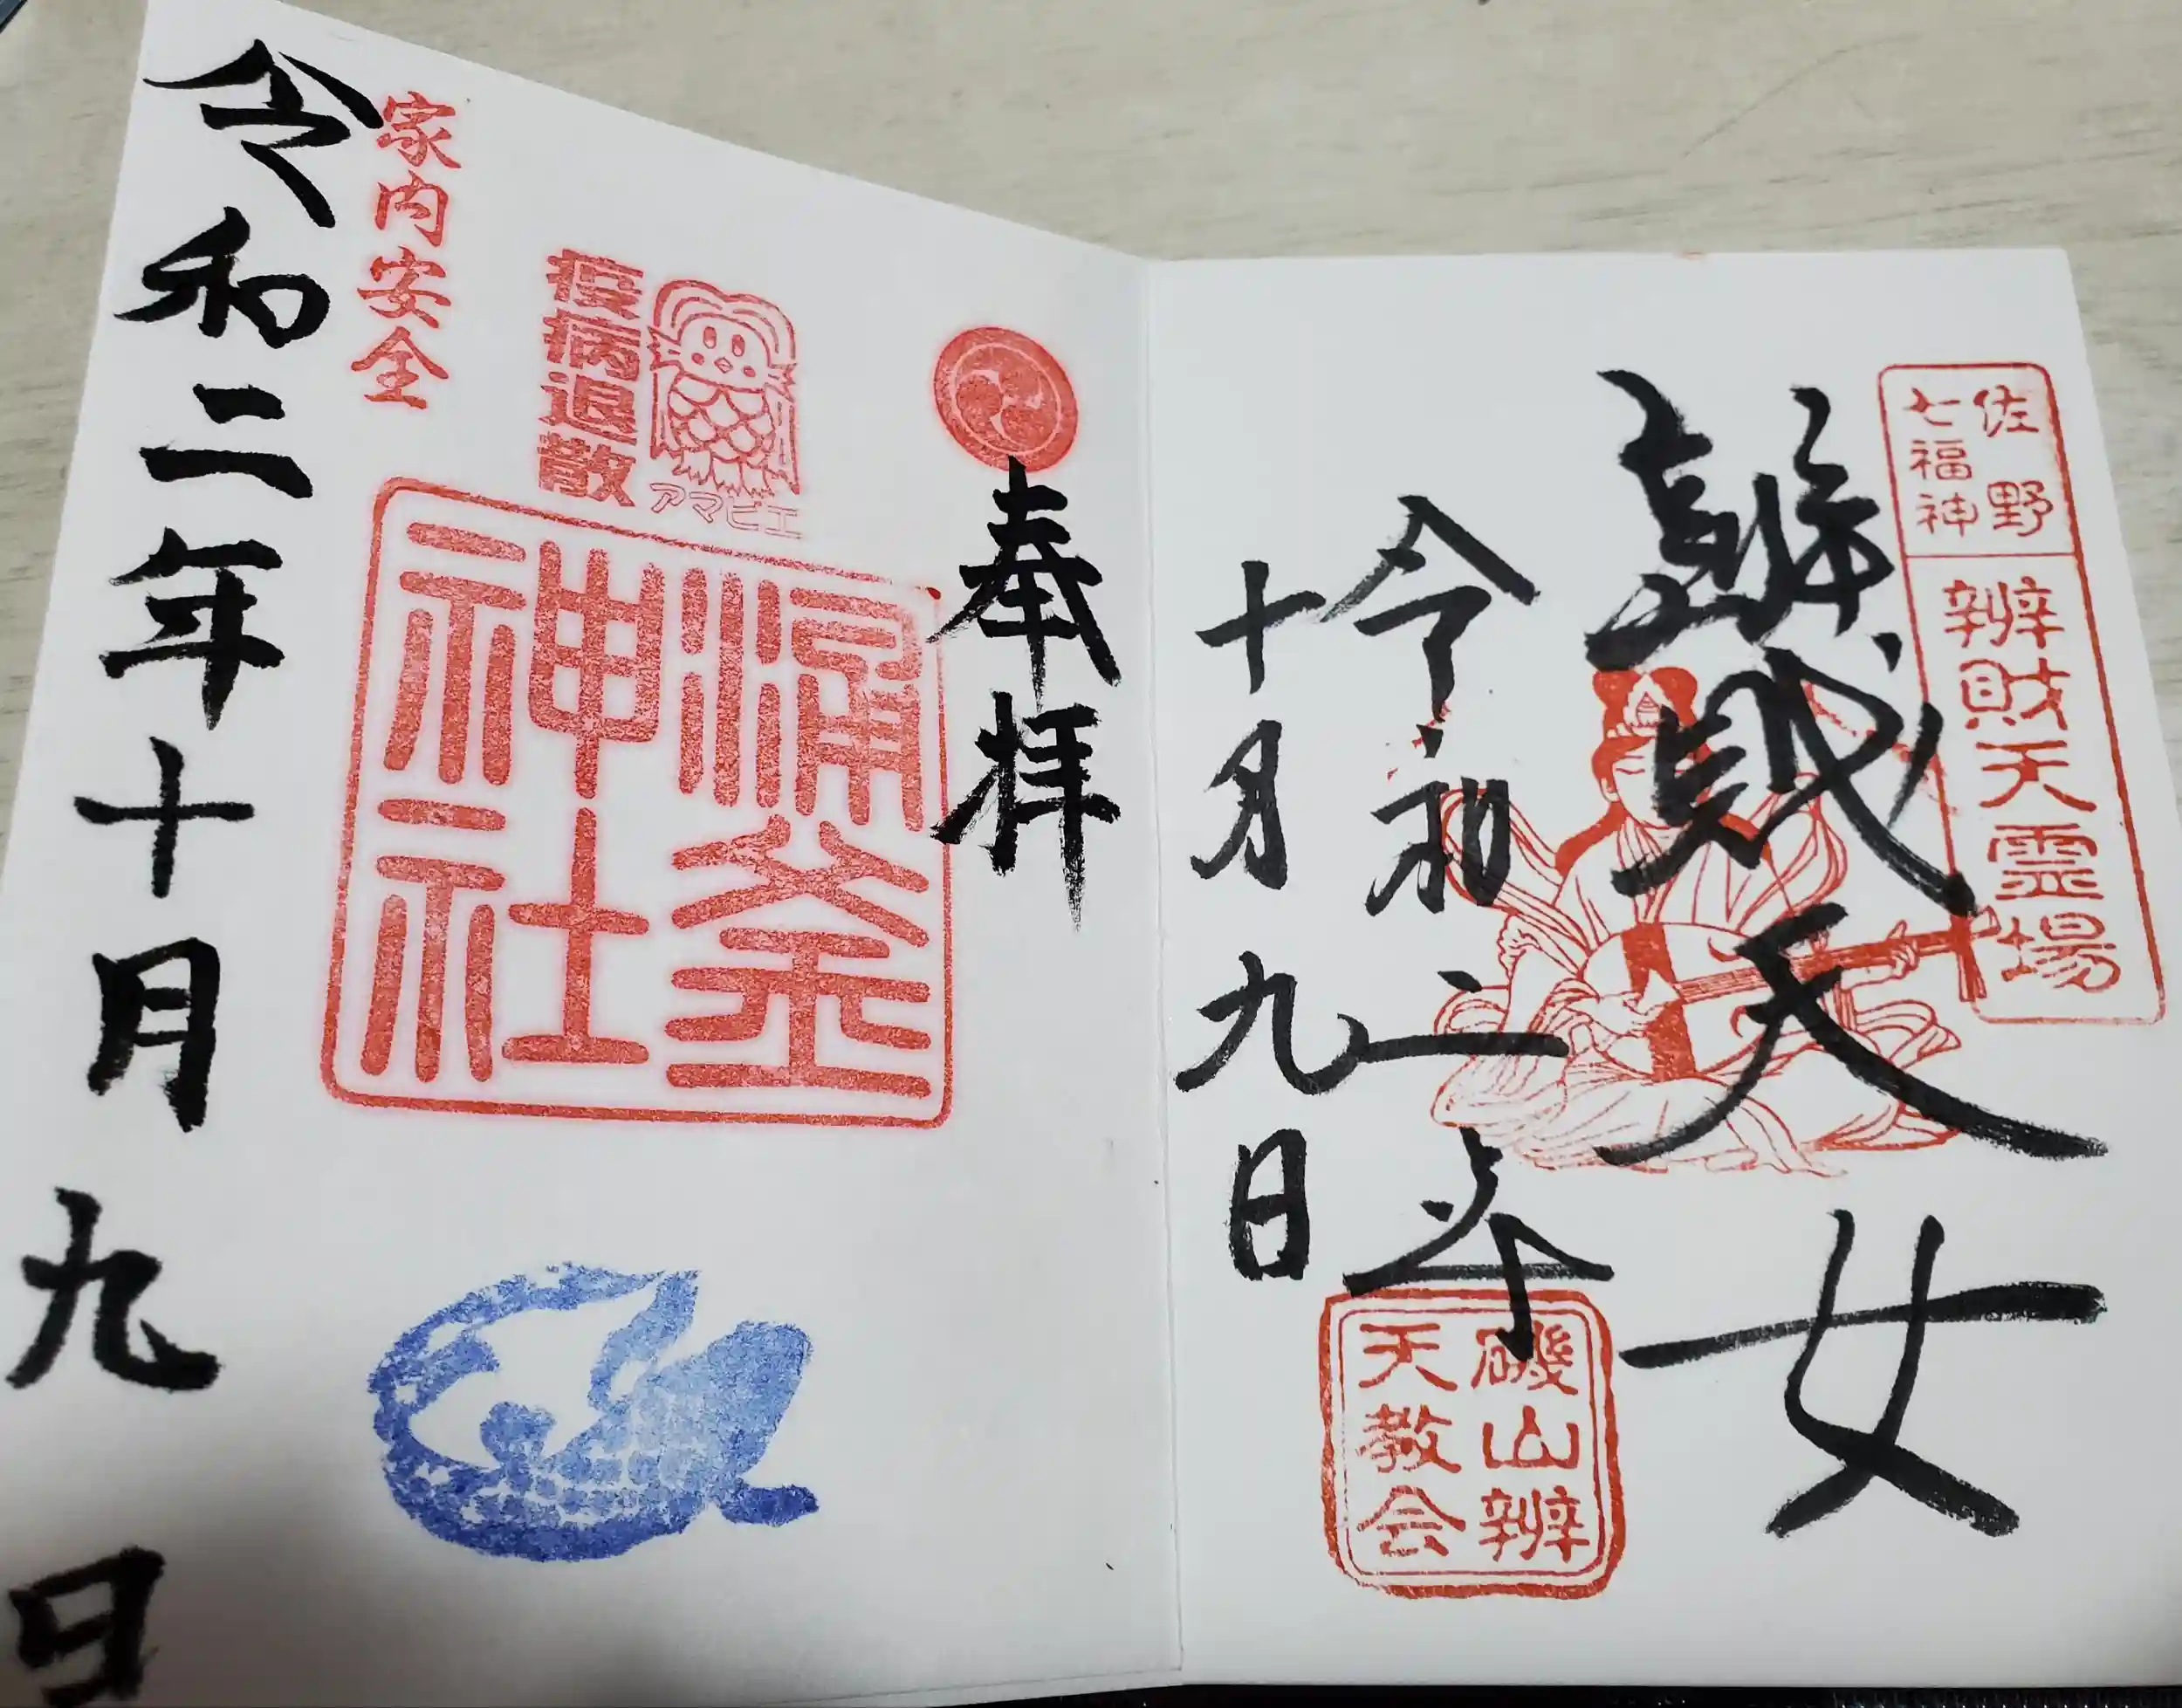 佐野
七福神
辨財天霊場
辨財天女
令和二年
十月九日
磯山辨
天教会
奉拝
アマビエ
疫病退散
涌釜
神社
家内安全
令和二年十月九日